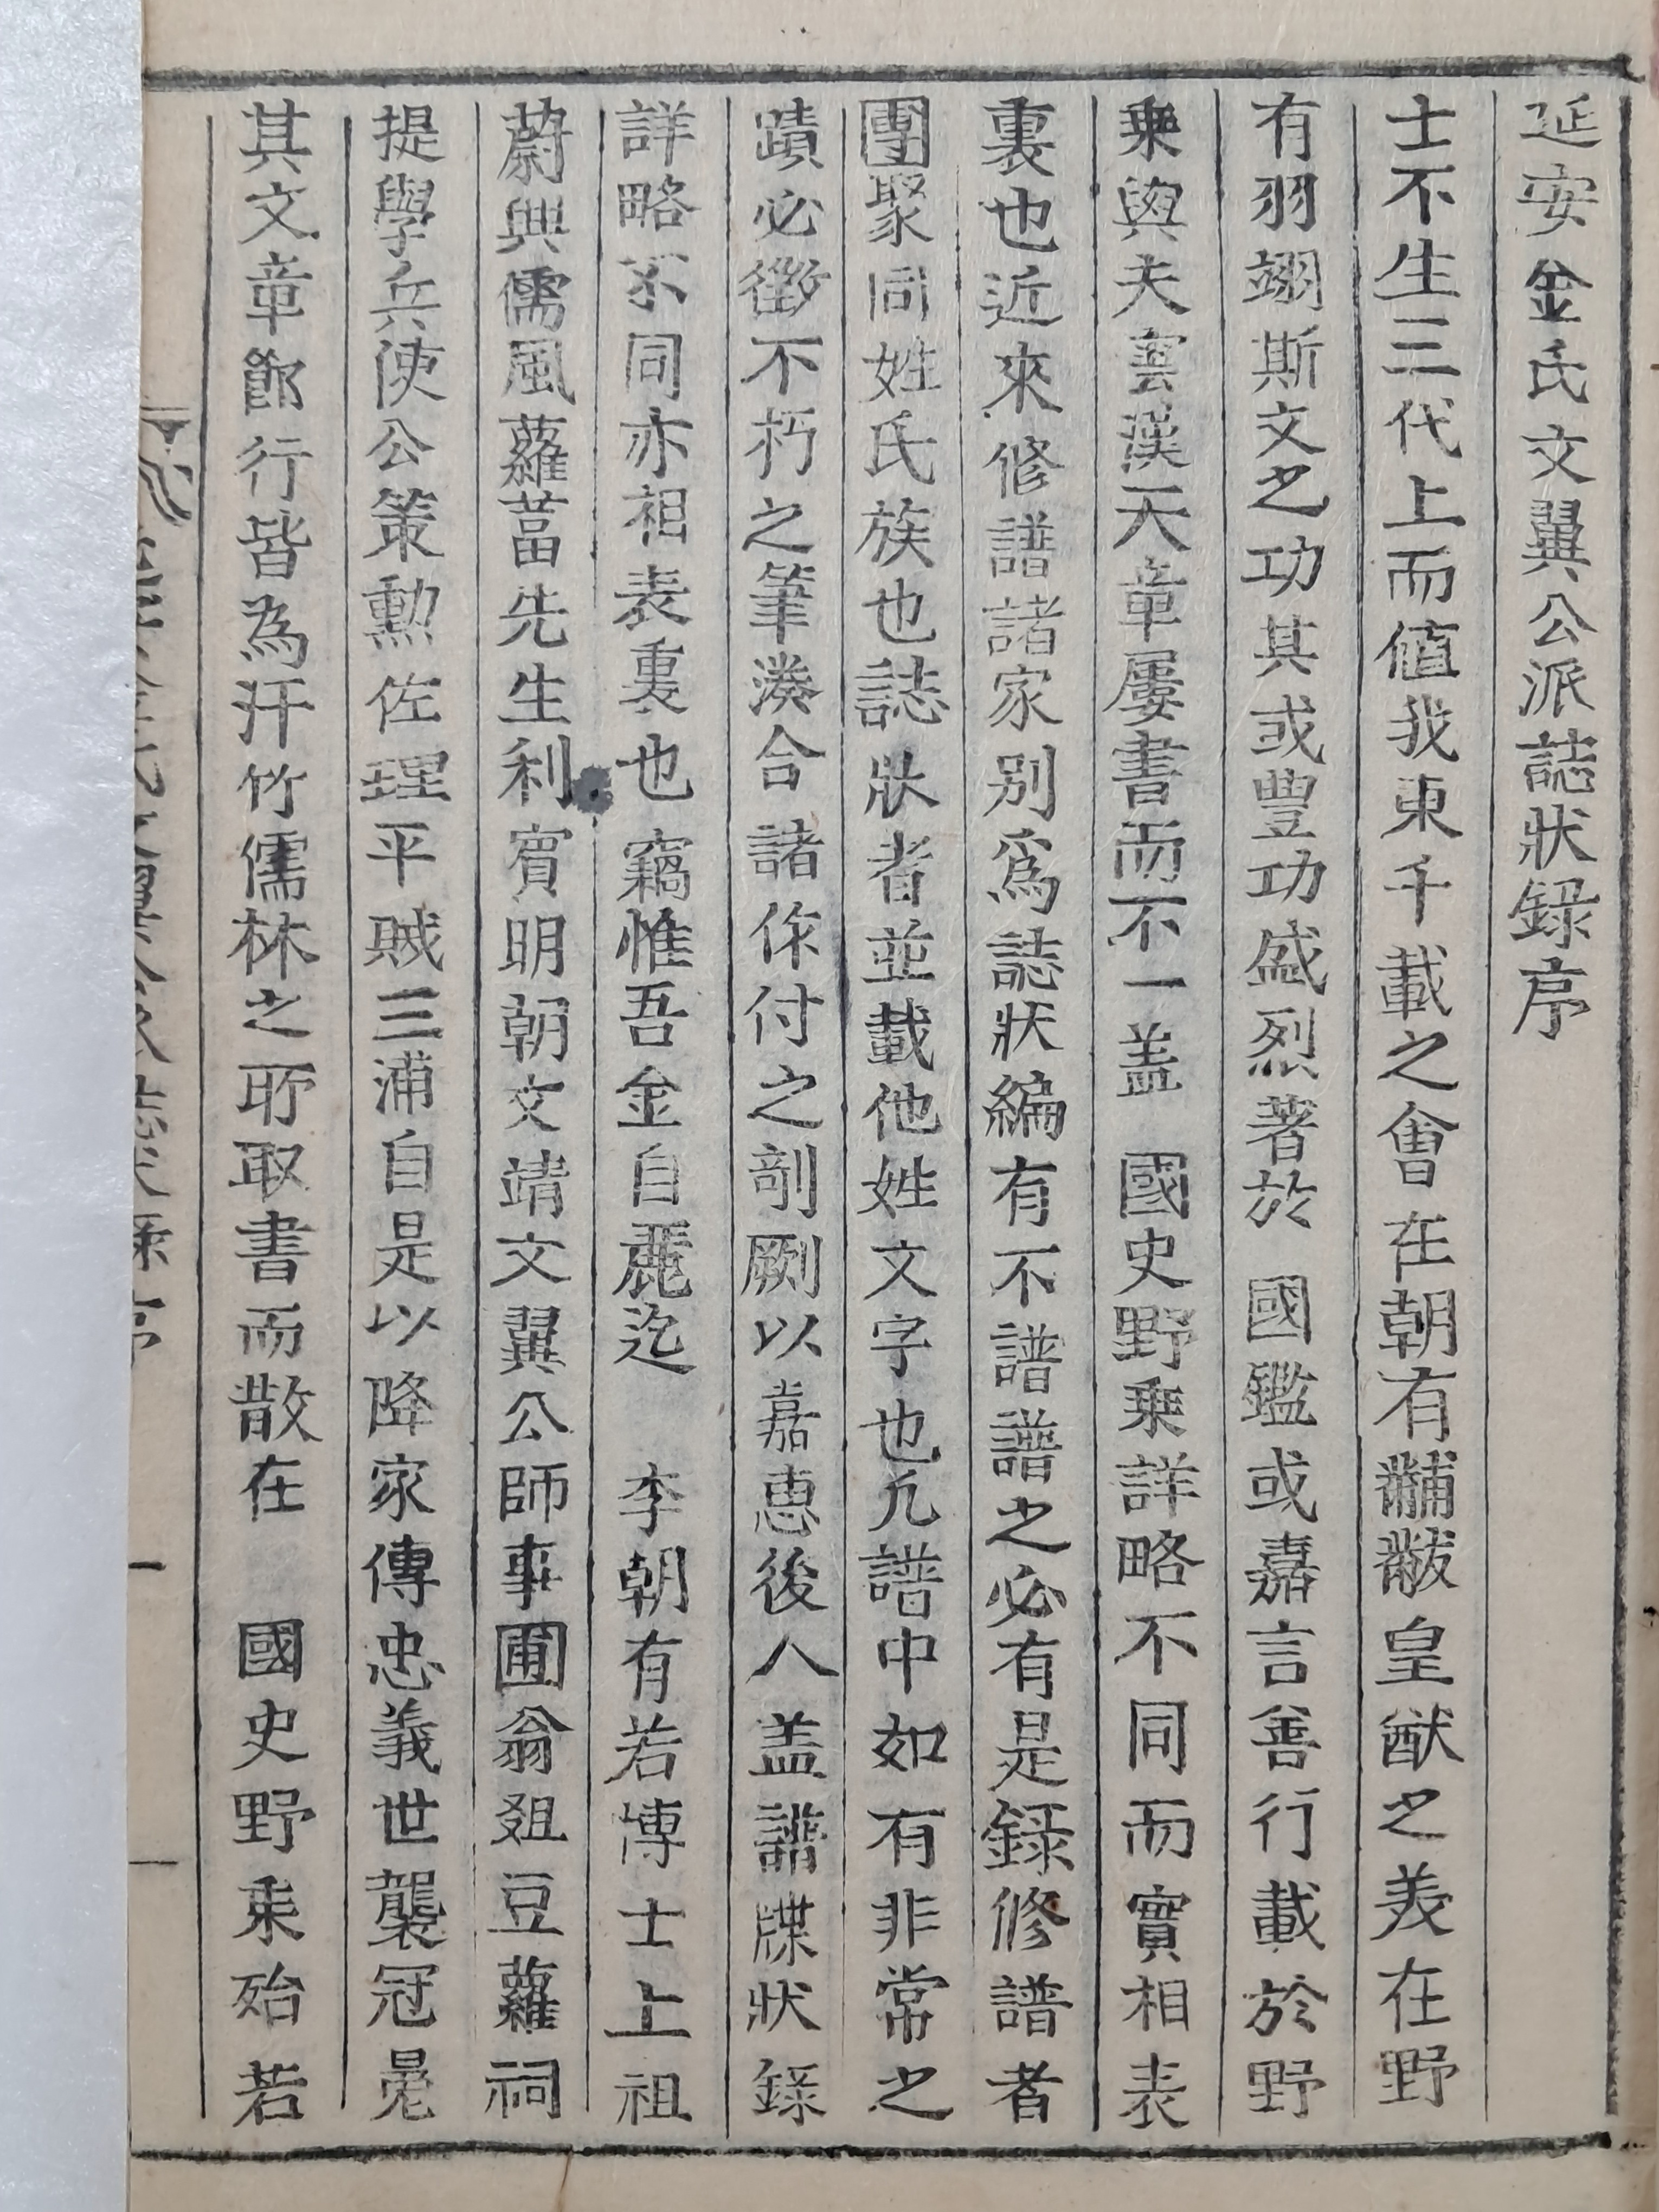 延安金氏文翼公派誌狀錄序
士不生三代上而値我東千載之會在朝有黼黻皇猷之美在野
有羽翊斯文之功其或豐功盛烈著於 國鑑或嘉言善行載於野
乗與夫雲漢天章屢書而不一盖 國史野乗詳略不同而實相表
裏也近來修譜諸家別爲誌狀編有不譜譜之必有是錄修譜者
團聚同姓氏族也誌狀者並載他姓文字也凢譜中如有非常之
蹟必徵不朽之筆湊合諸作付之剞劂以嘉惠後人盖譜牒狀錄
詳略不同亦相表裏也竊惟吾金自麗迄 李朝有若博士上祖
蔚興儒風蘿葍先生利賓明朝文靖文翼公師事圃翁俎豆蘿祠
提學兵使公策勳佐理平賊三浦自是以降家傳忠義世襲冠冕
其文章節行皆為汗竹儒林之所取書而散在 國史野乗殆若
一